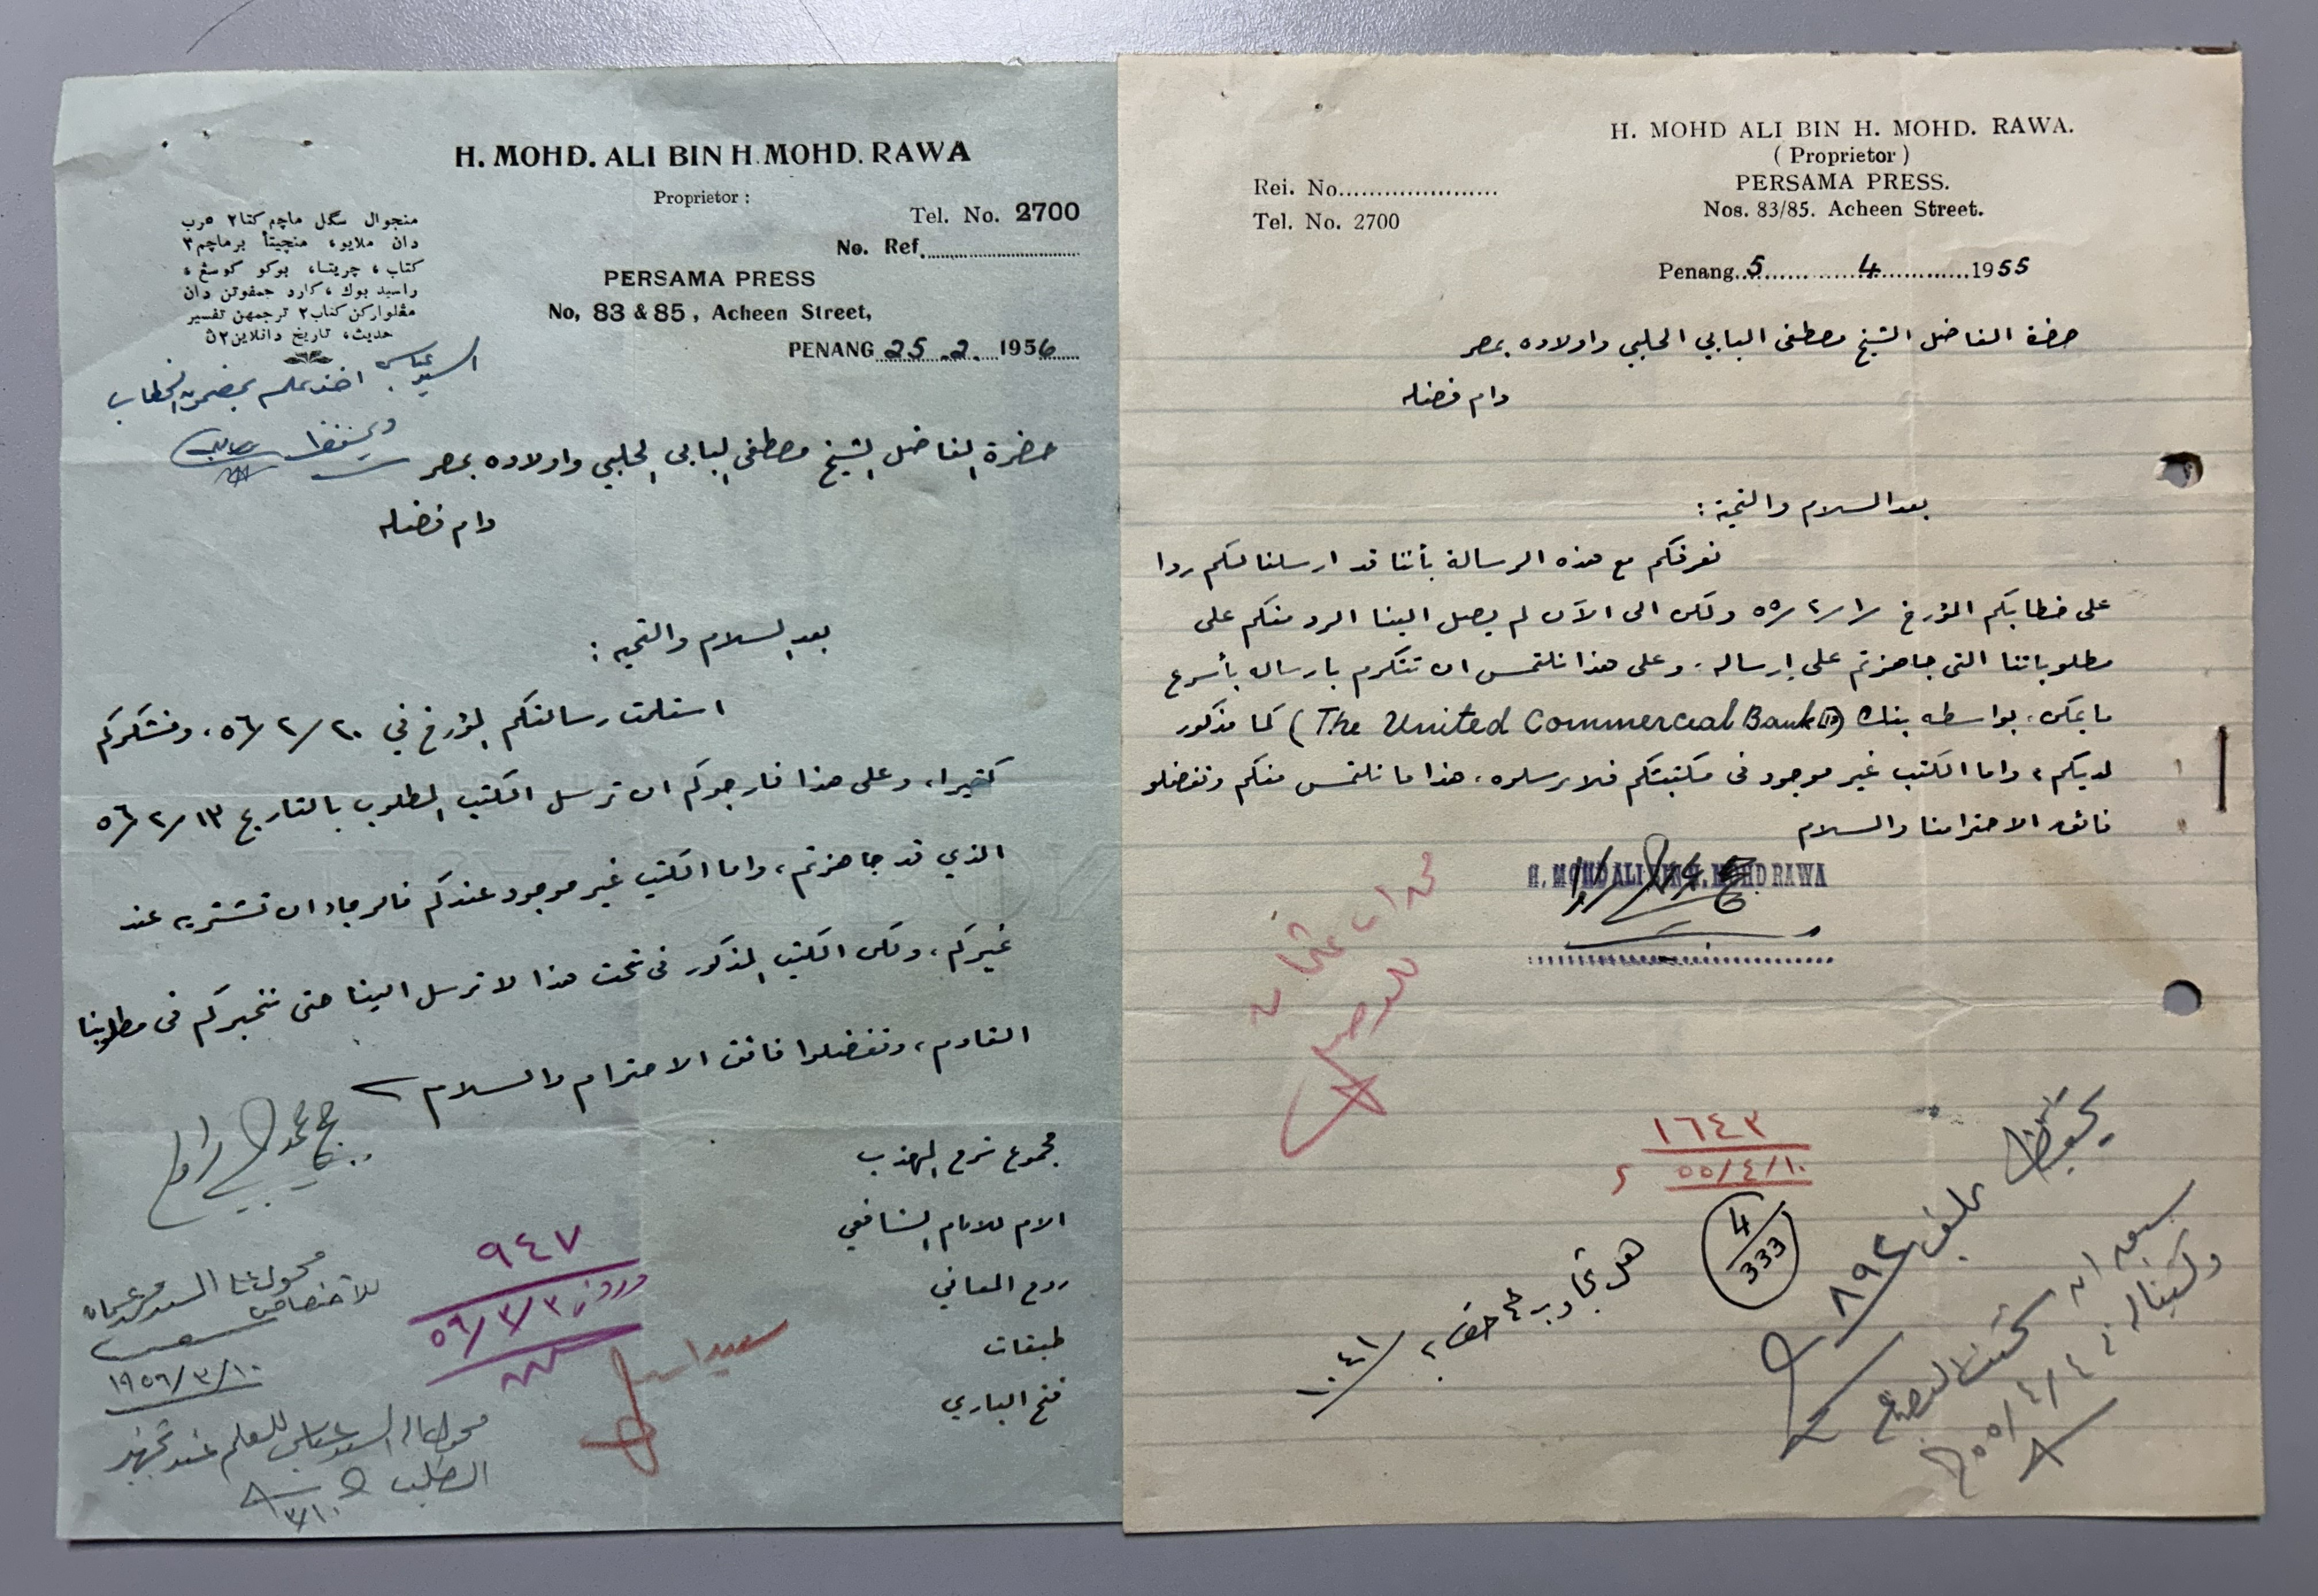 H. MOHD. ALI BIN H. MOHD. RAWA
Proprietor :
Tel. No. 2700
No. Ref.
PERSAMA PRESS
No, 83 & 85, Acheen Street,
PENANG 25.2.1956
منجوال سݢل ماچم كتاب٢ عرب
دان ملايوء منچيتق برماچم٢
كتابء چريتاء بوكو كوسڠء
راسيد بوكء كارد جمفوتن دان
مڠلواركن كتاب٢ ترجمهن تفسير
حديثء تاريخ دانلاين٢ث
السيد عباس
اخذ علم بمضمون الخطاب
ويحفظ
حضرة الفاضل الشيخ مصطفى البابى الحلبي واولاده بمصر
دام فضله
بعد السلام والتحيه :
استلمت رسالتكم المؤرخ في ٢٠/٢/٥٦، ونشكركم
كثيرا، وعلى هذا فارجوكم ان ترسل الكتب المطلوب بالتاريخ ١٣/٢/٥٦
الذي قد جاهزتم، واما الكتب غير موجود عندكم فالرجاء ان تشتريه عند
غيركم، ولكن الكتب المذكور فى تحت هذا لا ترسل الينا حتى نخبركم فى مطلوبنا
القادم، وتفضلوا فائق الاحترام والسلام
مجموع شرح المهذب
الام للامام الشافعي
روح المعاني
طبقات
فتح الباري
٩٤٧
ورود
٥٦/٣/٣
للأختصاص
١٩٥٦/٣/١٠
السيد عباس للعلم عند تجهيز
الطلب
٣/١٠
H. MOHD ALI BIN H. MOHD. RAWA.
( Proprietor )
PERSAMA PRESS.
Nos. 83/85. Acheen Street.
Rei. No.
Tel. No. 2700
Penang 5 4 1955
حضرة الفاضل الشيخ مصطفى البابي الحلبي واولاده بمصر
دام فضله
بعد السلام والتحية :
نعرفكم مع هذه الرسالة بأننا قد ارسلنا لكم ردا
على خطابكم المؤرخ ١/٢/٥٥ ولكن الى الآن لم يصل الينا الرد منكم على
مطلوباتنا التى جاهزتم على إرساله. وعلى هذا نلتمس ان تتكرم بارساله بأسرع
ما يمكن، بواسطه بنك (The United Commercial Bank) كما مذكور
لديكم، واما الكتب غير موجود فى مكتبتكم فلا ترسلوه، هذا ما نلتمس منكم وتفضلو
فائق الاحترامنا والسلام
H. MOHD ALI BIN H. MOHD RAWA
١٦٤٣
٥٥/٤/١٠
4/333
يحفظ
٨٩٢
سبق ان